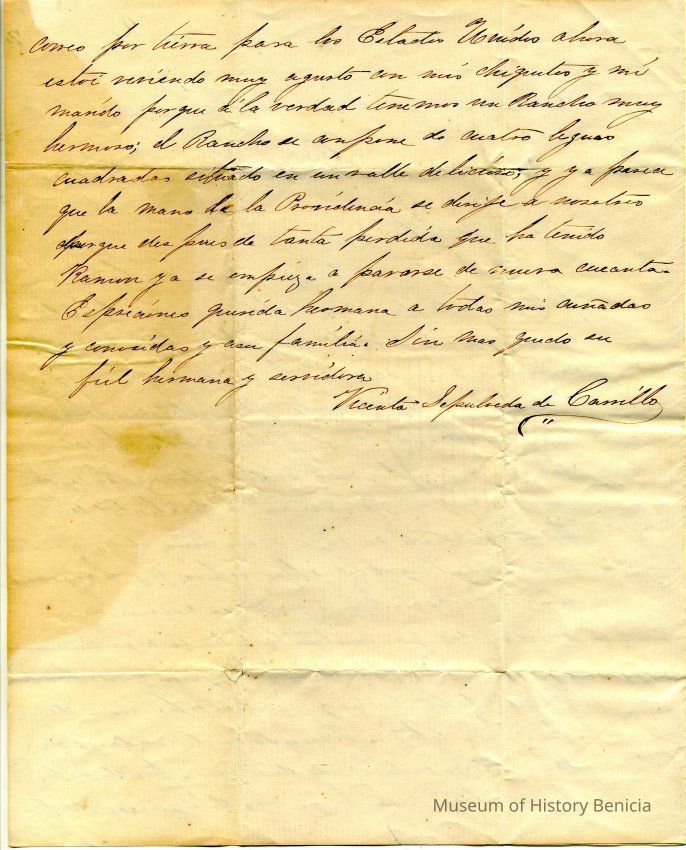 correo por tierra para los Estados Unidos ahora
estoi viviendo muy agusto con mis chiquitos y mi
marido porque a la verdad tenemos un Rancho muy
hermoso; el Rancho se conpone de cuatro leguas
cuadradas situado en un valle delicioso; y ya parece
que la mano de la Providencia se dirije a nosotros
porque despues de tanta perdida que ha tenido
Ramon ya se empieza a pararse de nueva cuenta.
Espreciones querida hermana a todas mis cuñadas
y conosidas y asu familia. Sin mas quedo su
fiel hermana y servidora
Vicenta Sepulveda de Carrillo
Museum of History Benicia